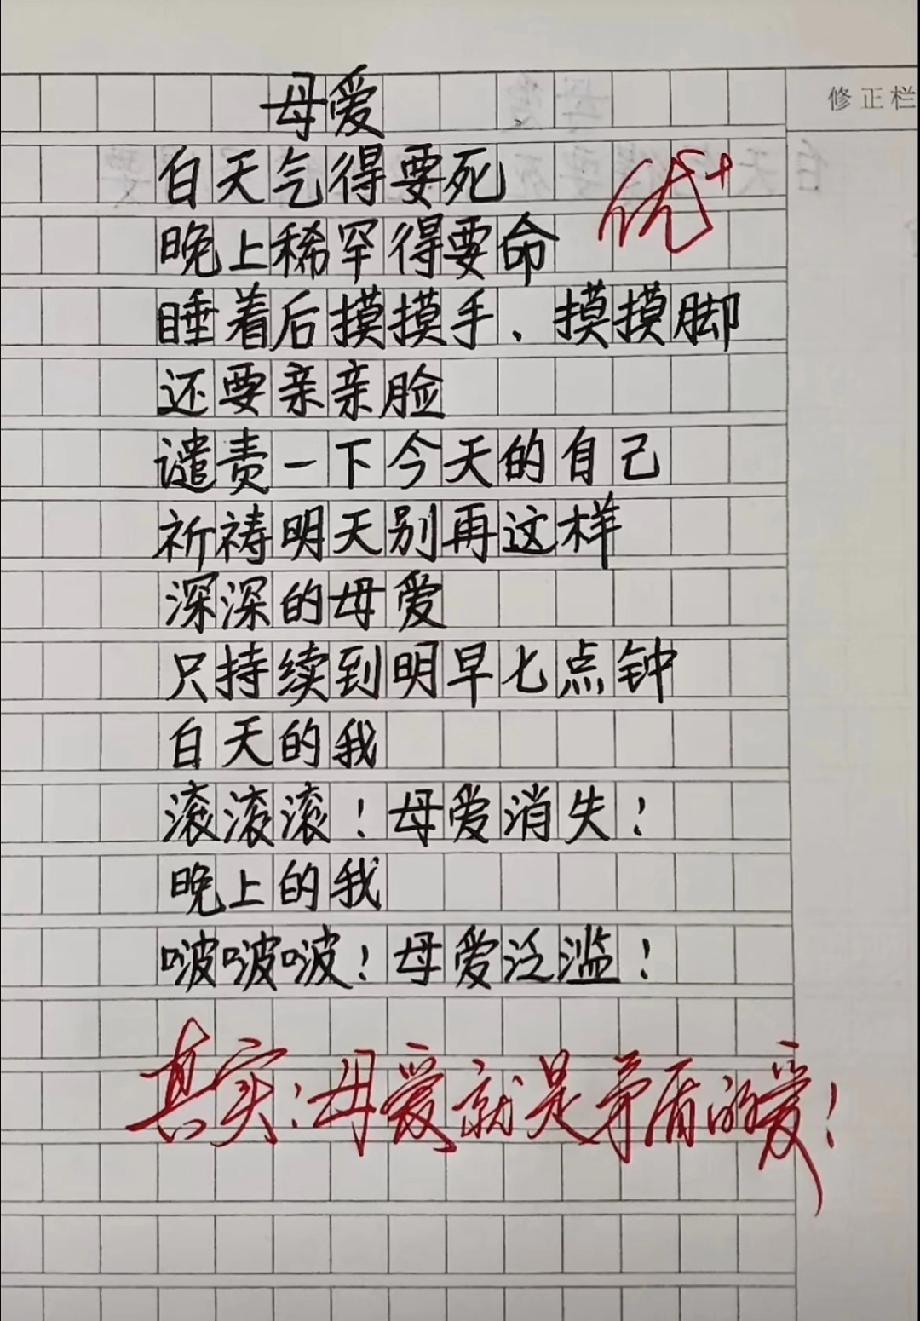 修正栏
母爱
白天气得要死
优+
晚上稀罕得要命
睡着后摸摸手、摸摸脚
还要亲亲脸
谴责一下今天的自己
祈祷明天别再这样
深深的母爱
只持续到明早七点钟
白天的我
滚滚滚！母爱消失！
晚上的我
啵啵啵！母爱泛滥！
真实：母爱就是矛盾的爱！